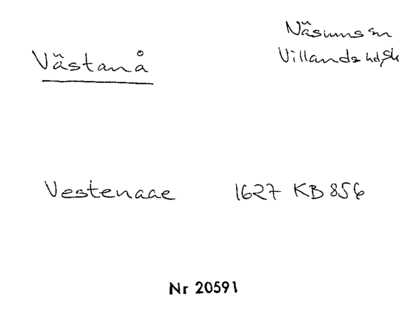 Västanå
Näsums sn
Villands hd, Sk
Vestenaae 1627 KB 856
Nr 20591